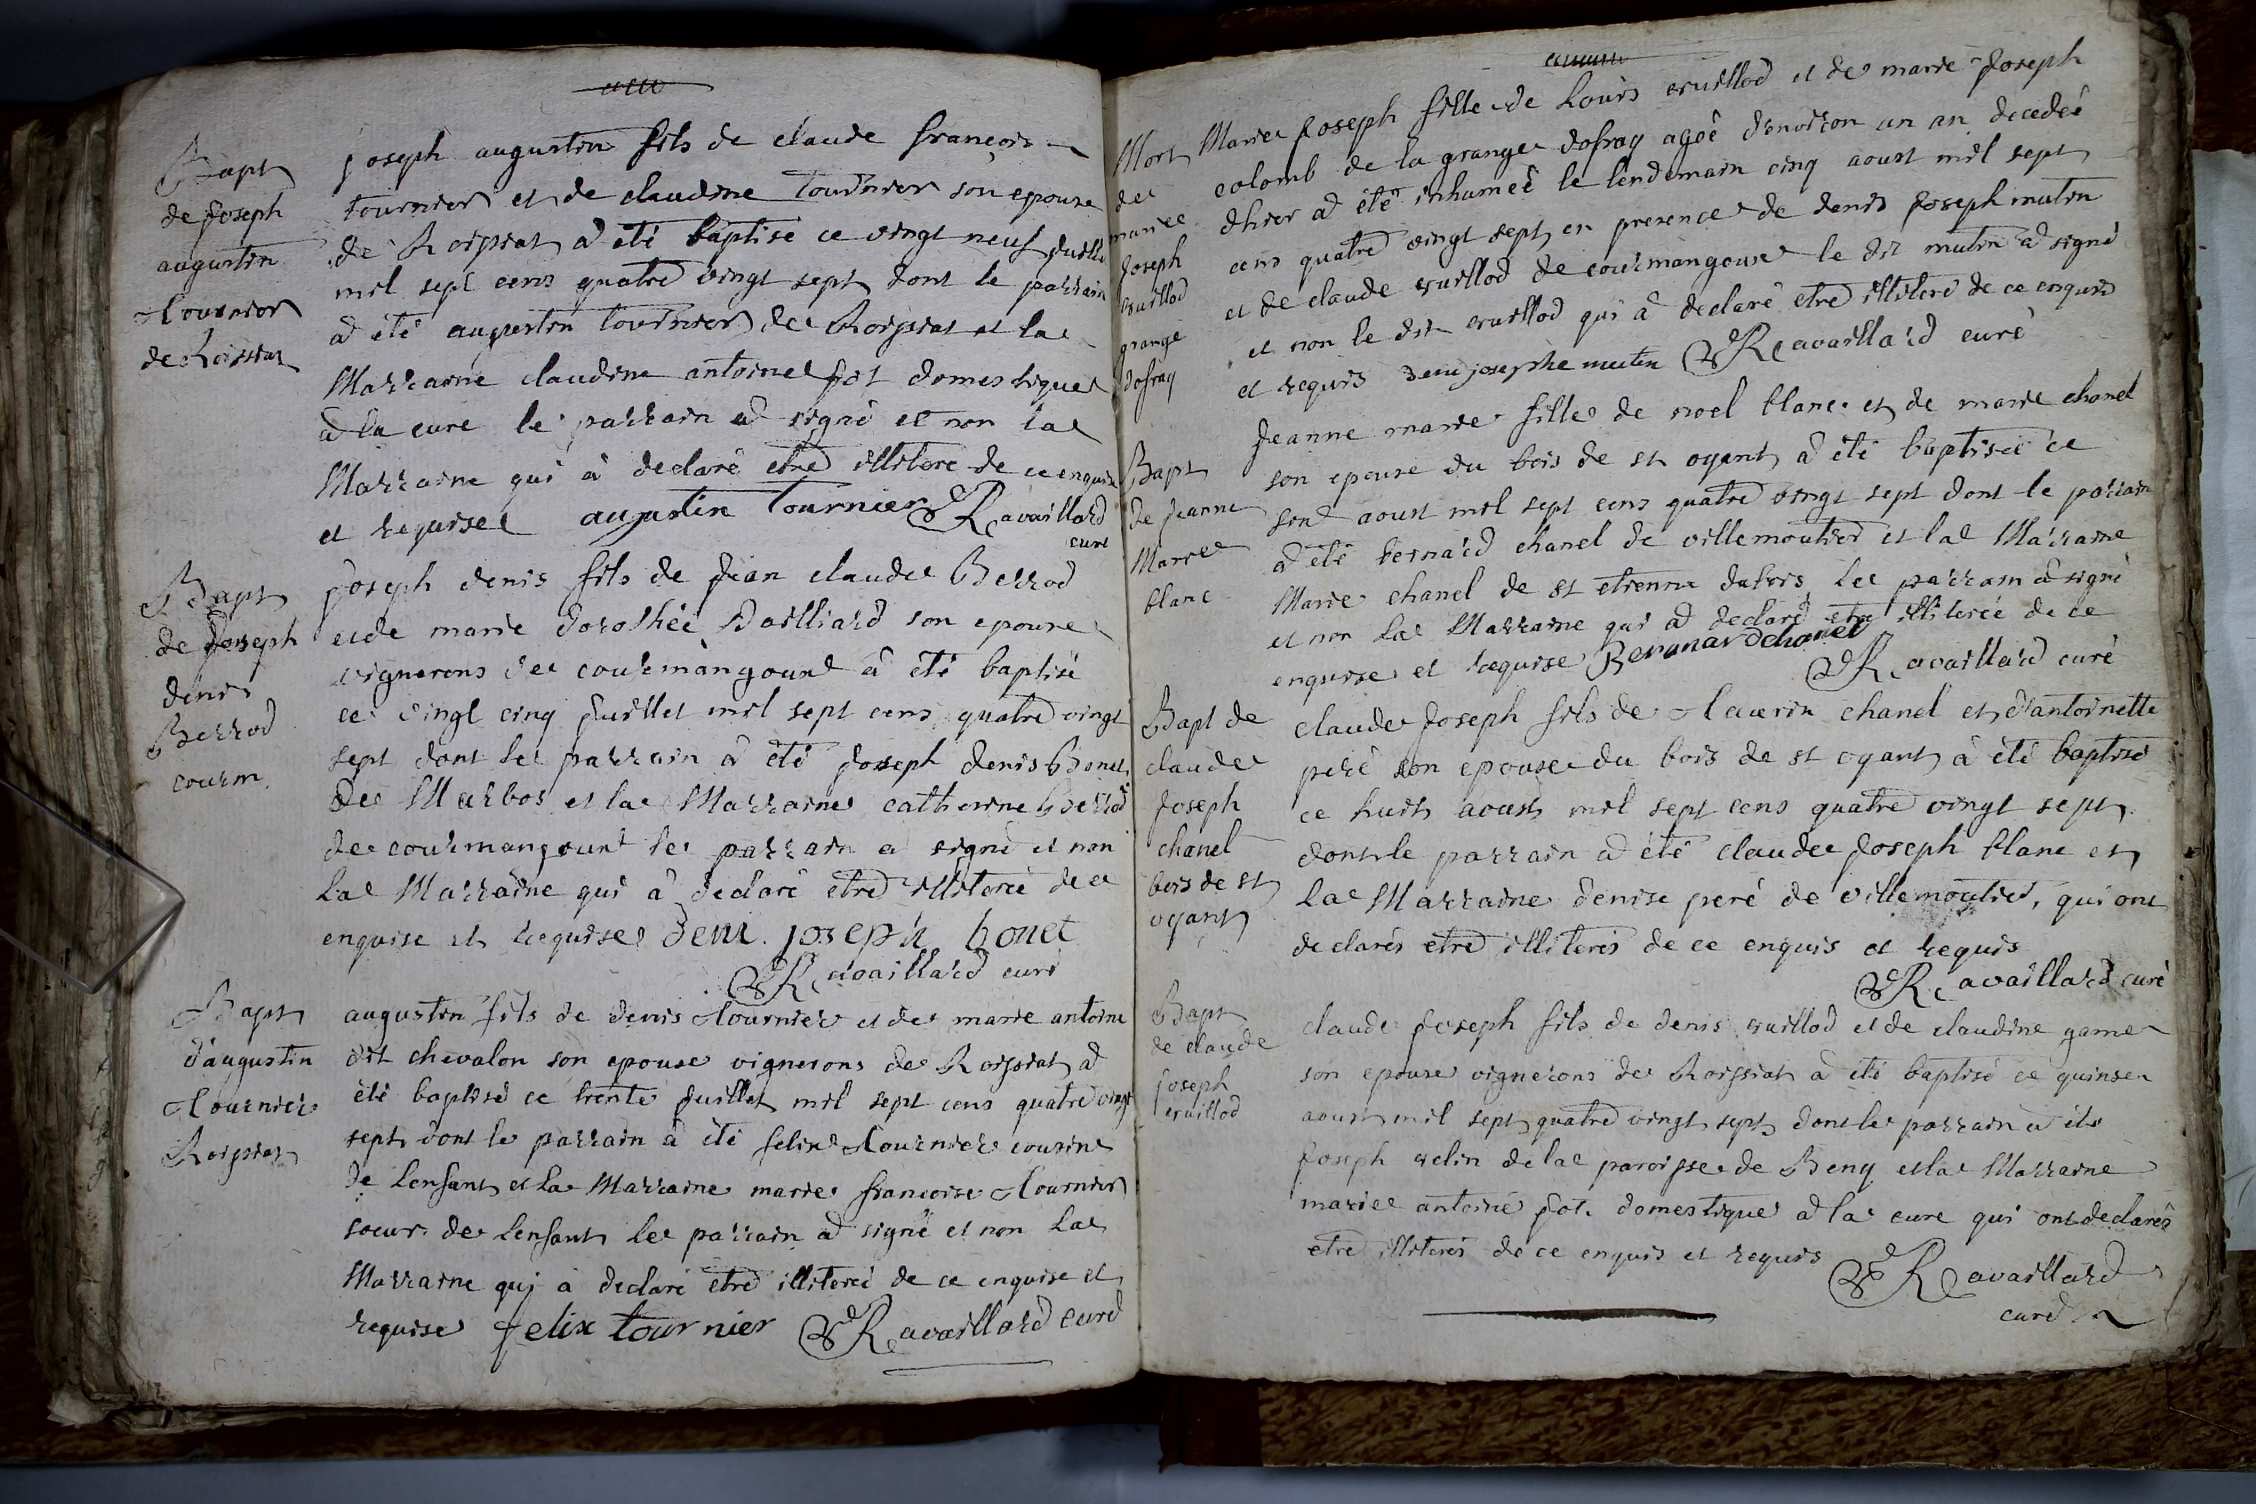 Bapt
de joseph
augustin
tournier
de Roissiat
joseph augustin fils de claude françois
tournier et de claudine tournier son epouse
de Roissiat a été baptisé ce vingt neuf juillet
mil sept cens quatre vingt sept dont le parrain
a été augustin tournier de Roissiat et la
Marraine claudine antoine jot domestique
a la cure le parrain a signé et non la
Marraine qui a declaré etre illiteré de ce enquise
et requise augustin tournier Ravaillard
curé
Bapt
de joseph
denis
Berrod
courm.
joseph denis fils de jean claude Berrod
et de marie dorothée Dailliard son epouse
vignerons de courmangoux a été baptisé
ce vingt cinq juillet mil sept cens quatre vingt
sept dont le parrain a été joseph denis Bonet
de Marbos et la Marraine catherine Berrod
de courmangoux le parrain a signé et non
la Marraine qui a declaré etre illiterée de ce
enquise et requise deni joseph bonet
Ravaillard curé
Bapt
d'augustin
tournier
Roissiat
augustin fils de denis tournier et de marie antoine
dit chevalon son epouse vignerons de Roissiat a
été baptisé ce trente juillet mil sept cens quatre vingt
sept dont le parrain a été felix tournier cousin
de lenfant et la Marraine marie francoise tournier
soeur de lenfant le parrain a signé et non la
Marraine qui a declaré etre illiterée de ce enquise et
requise felix tournier Ravaillard curé
Mort
de
marie
joseph
vuillod
grange
dofray
Marie joseph fille de Louis vuillod et de marie joseph
colomb de la grange dofray agée d'environ un an decedée
dhier a été inhumée le lendemain cinq aoust mil sept
cens quatre vingt sept en presence de denis joseph mutin
et de claude vuillod de courmangoux le dit mutin a signé
et non le dit vuillod qui a declaré etre illiteré de ce enquis
et requis deni josephe mutin Ravaillard curé
Bapt
de jeanne
Marie
blanc
jeanne marie fille de noel blanc et de marie chanel
son epouse du bois de st oyant a été baptisée ce
aoust mil sept cens quatre vingt sept dont le parrain
a été bernard chanel de villemoutier et la Marraine
Marie chanel de st etienne dubois le parrain a signé
et non la Marraine qui a declaré etre illiterée de ce
enquise et requise Bernard chanel
Ravaillard curé
Bapt de
claude
joseph
chanel
bois de st
oyant
claude joseph fils de claude chanel et d'antoinette
peré son epouse du bois de st oyant a été baptisé
ce huit aoust mil sept cens quatre vingt sept
dont le parrain a été claude joseph blanc et
la Marraine denise peré de villemoutier, qui ont
declarés etre illiterés de ce enquis et requis
Ravaillard curé
Bapt
de claude
joseph
vuillod
claude joseph fils de denis vuillod et de claudine game
son epouse vignerons de Roissiat a été baptisé ce quinse
aoust mil sept quatre vingt sept dont le parrain a été
joseph velin de la paroisse de Beny et la Marraine
marie antoine jot domestique a la cure qui ont declarés
etre illiterés de ce enquis et requis Ravaillard
curé